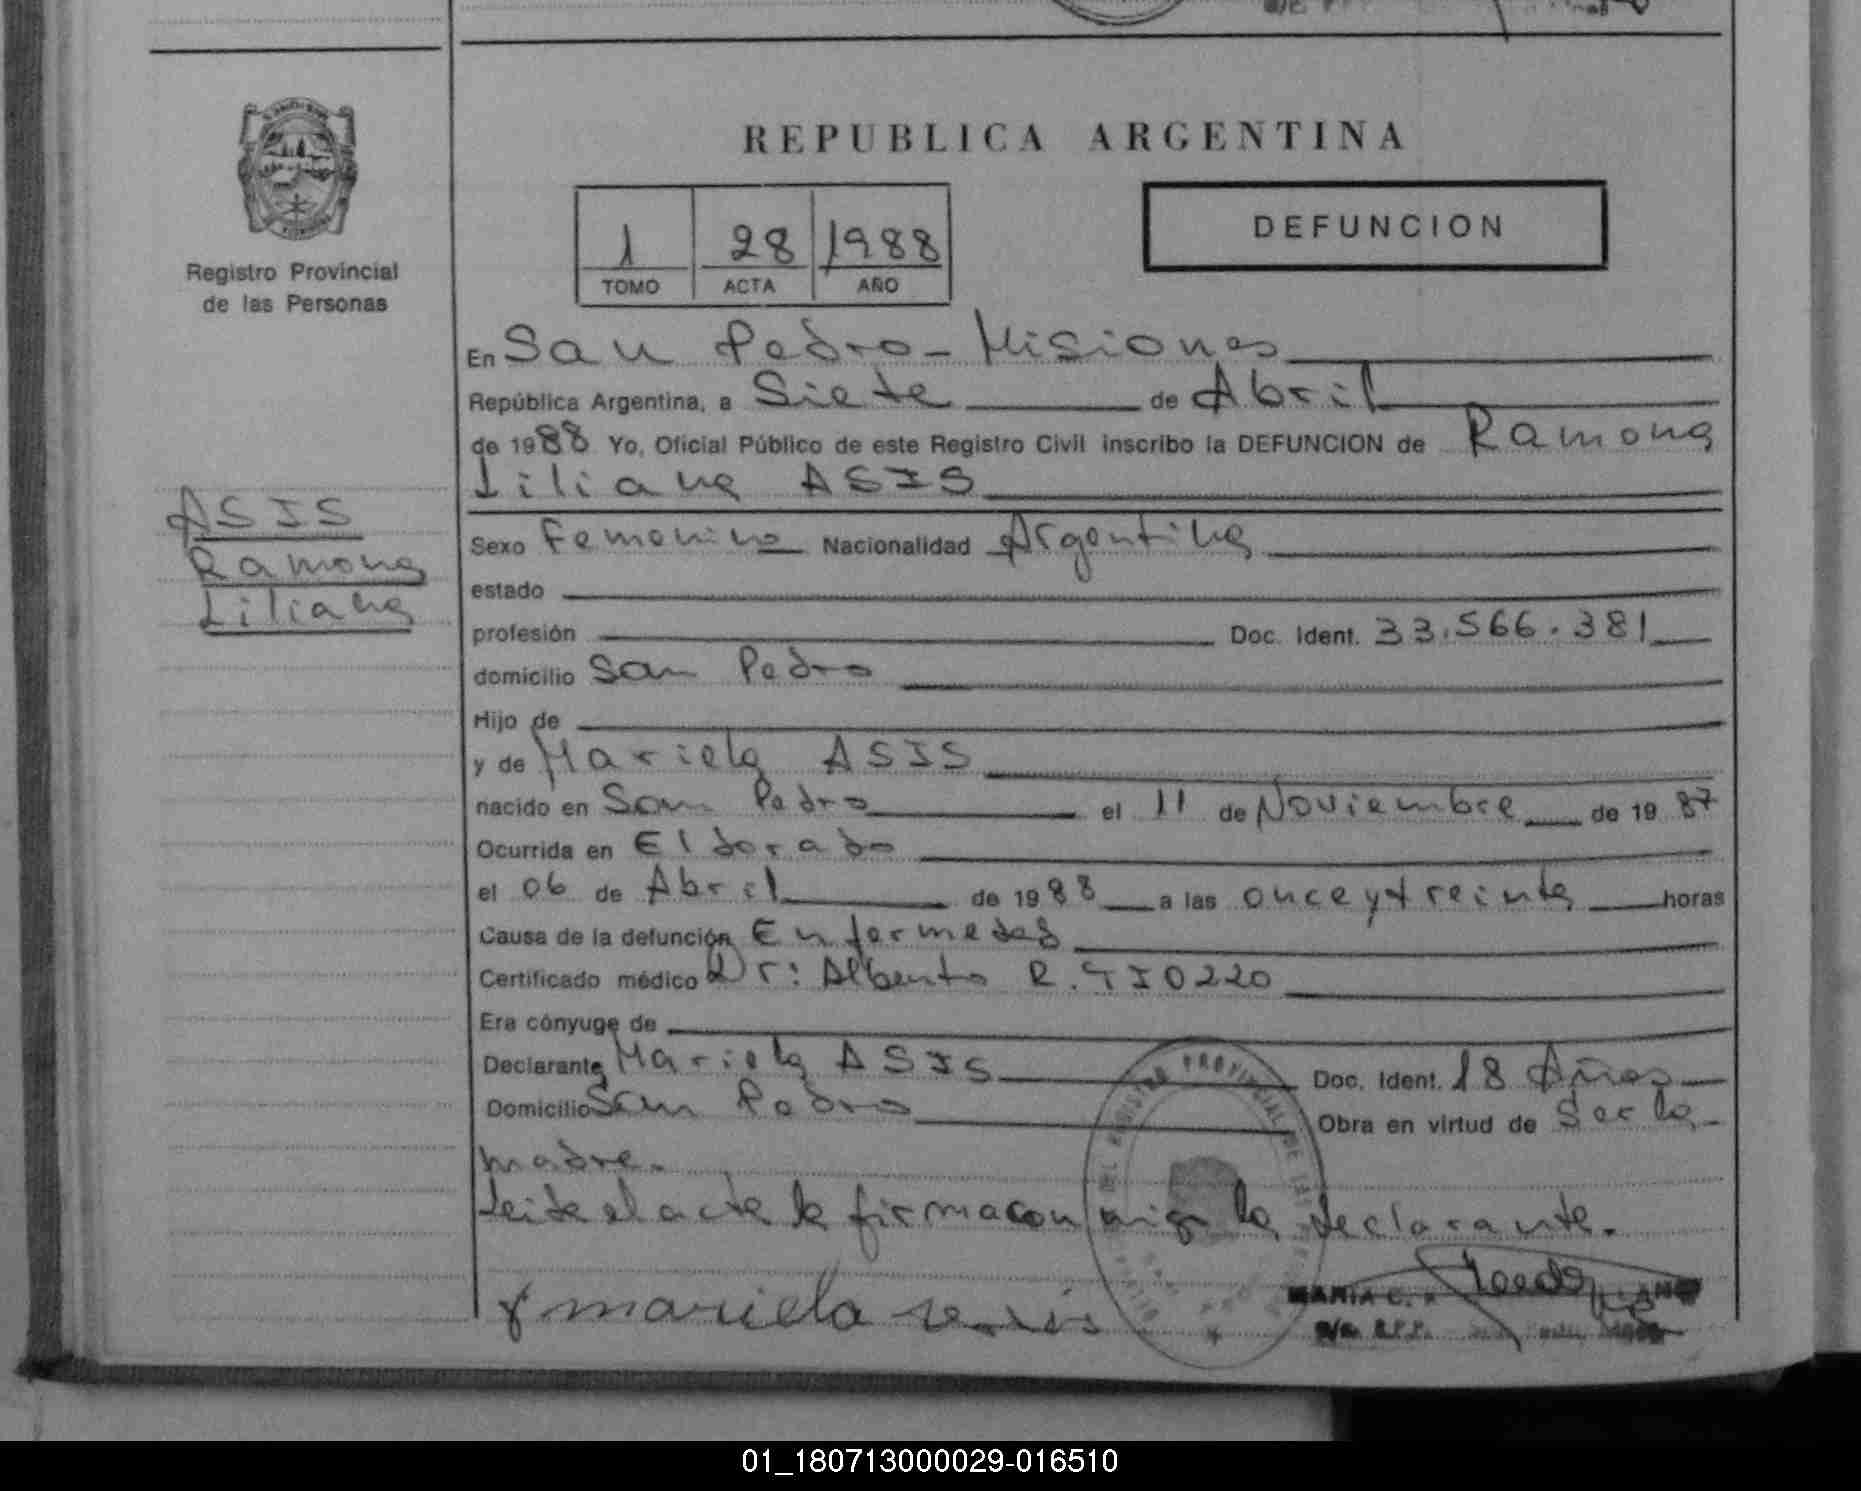 REPUBLICA ARGENTINA
Registro Provincial
de las Personas
1 28 1988
TOMO ACTA AÑO
DEFUNCION
En San Pedro - Misiones
República Argentina, a Siete de Abril
de 1988 Yo, Oficial Público de este Registro Civil inscribo la DEFUNCION de Ramona
Liliana ASIS
ASIS
Ramona
Liliana
Sexo Femenino Nacionalidad Argentina
estado
profesión Doc. Ident. 33.566.381
domicilio San Pedro
Hijo de
y de Mariela ASIS
nacido en San Pedro el 11 de Noviembre de 1987
Ocurrida en Eldorado
el 06 de Abril de 1988 a las once y treinta horas
Causa de la defunción Enfermedad
Certificado médico Dr: Alberto R.
Era cónyuge de
Declarante Mariela ASIS Doc. Ident. 18 Años
Domicilio San Pedro Obra en virtud de Ser la
madre.
Leida el acta la firma con migo la declarante.
mariela
MARIA C.
REGISTRO PROVINCIAL DE LAS
01_180713000029-016510